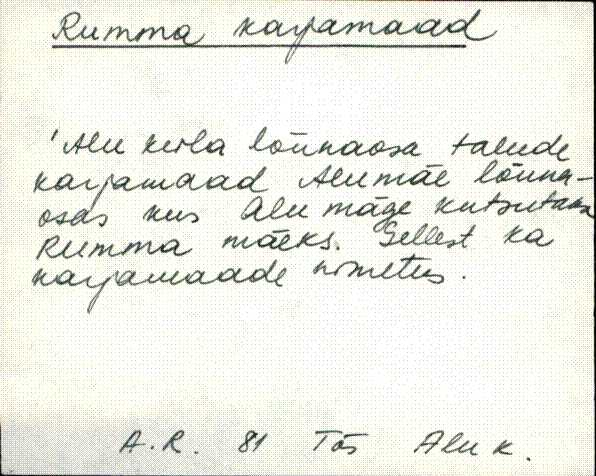 Rumma karjamaad
'Alu küla lõunaosa talude
karjamaad Alumäe lõuna-
osas kus Alu mäge kutsutakse
Rumma mäeks. Sellest ka
karjamaade nimetus.
A.R. 81 Tõs Alu k.